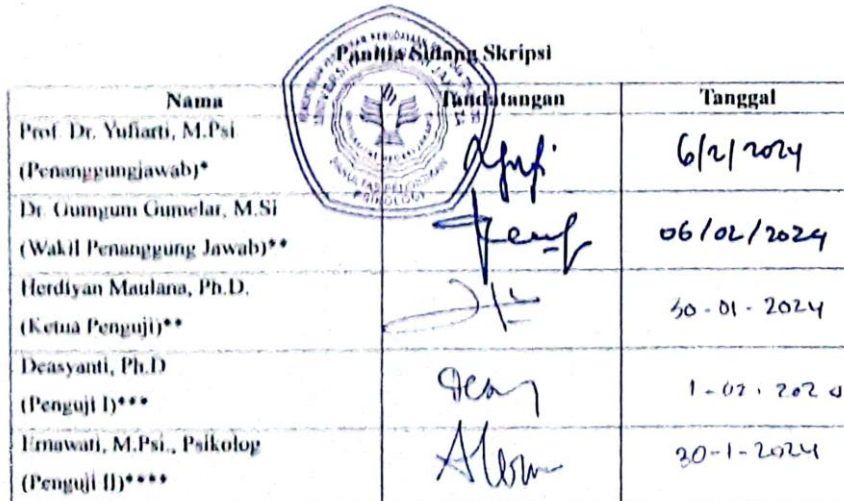 Panitia Sidang Skripsi
Nama Tandatangan Tanggal
Prof. Dr. Yufiarti, M.Psi
(Penanggungjawab)* 6/2/2024
Dr. Gumgum Gumelar, M.Si
(Wakil Penanggung Jawab)** 06/02/2024
Herdiyan Maulana, Ph.D.
(Ketua Penguji)** 30-01-2024
Deasyanti, Ph.D
(Penguji I)*** 1-02-202
Ernawati, M.Psi., Psikolog
(Penguji II)**** 30-1-2024
PSIKOLOGI